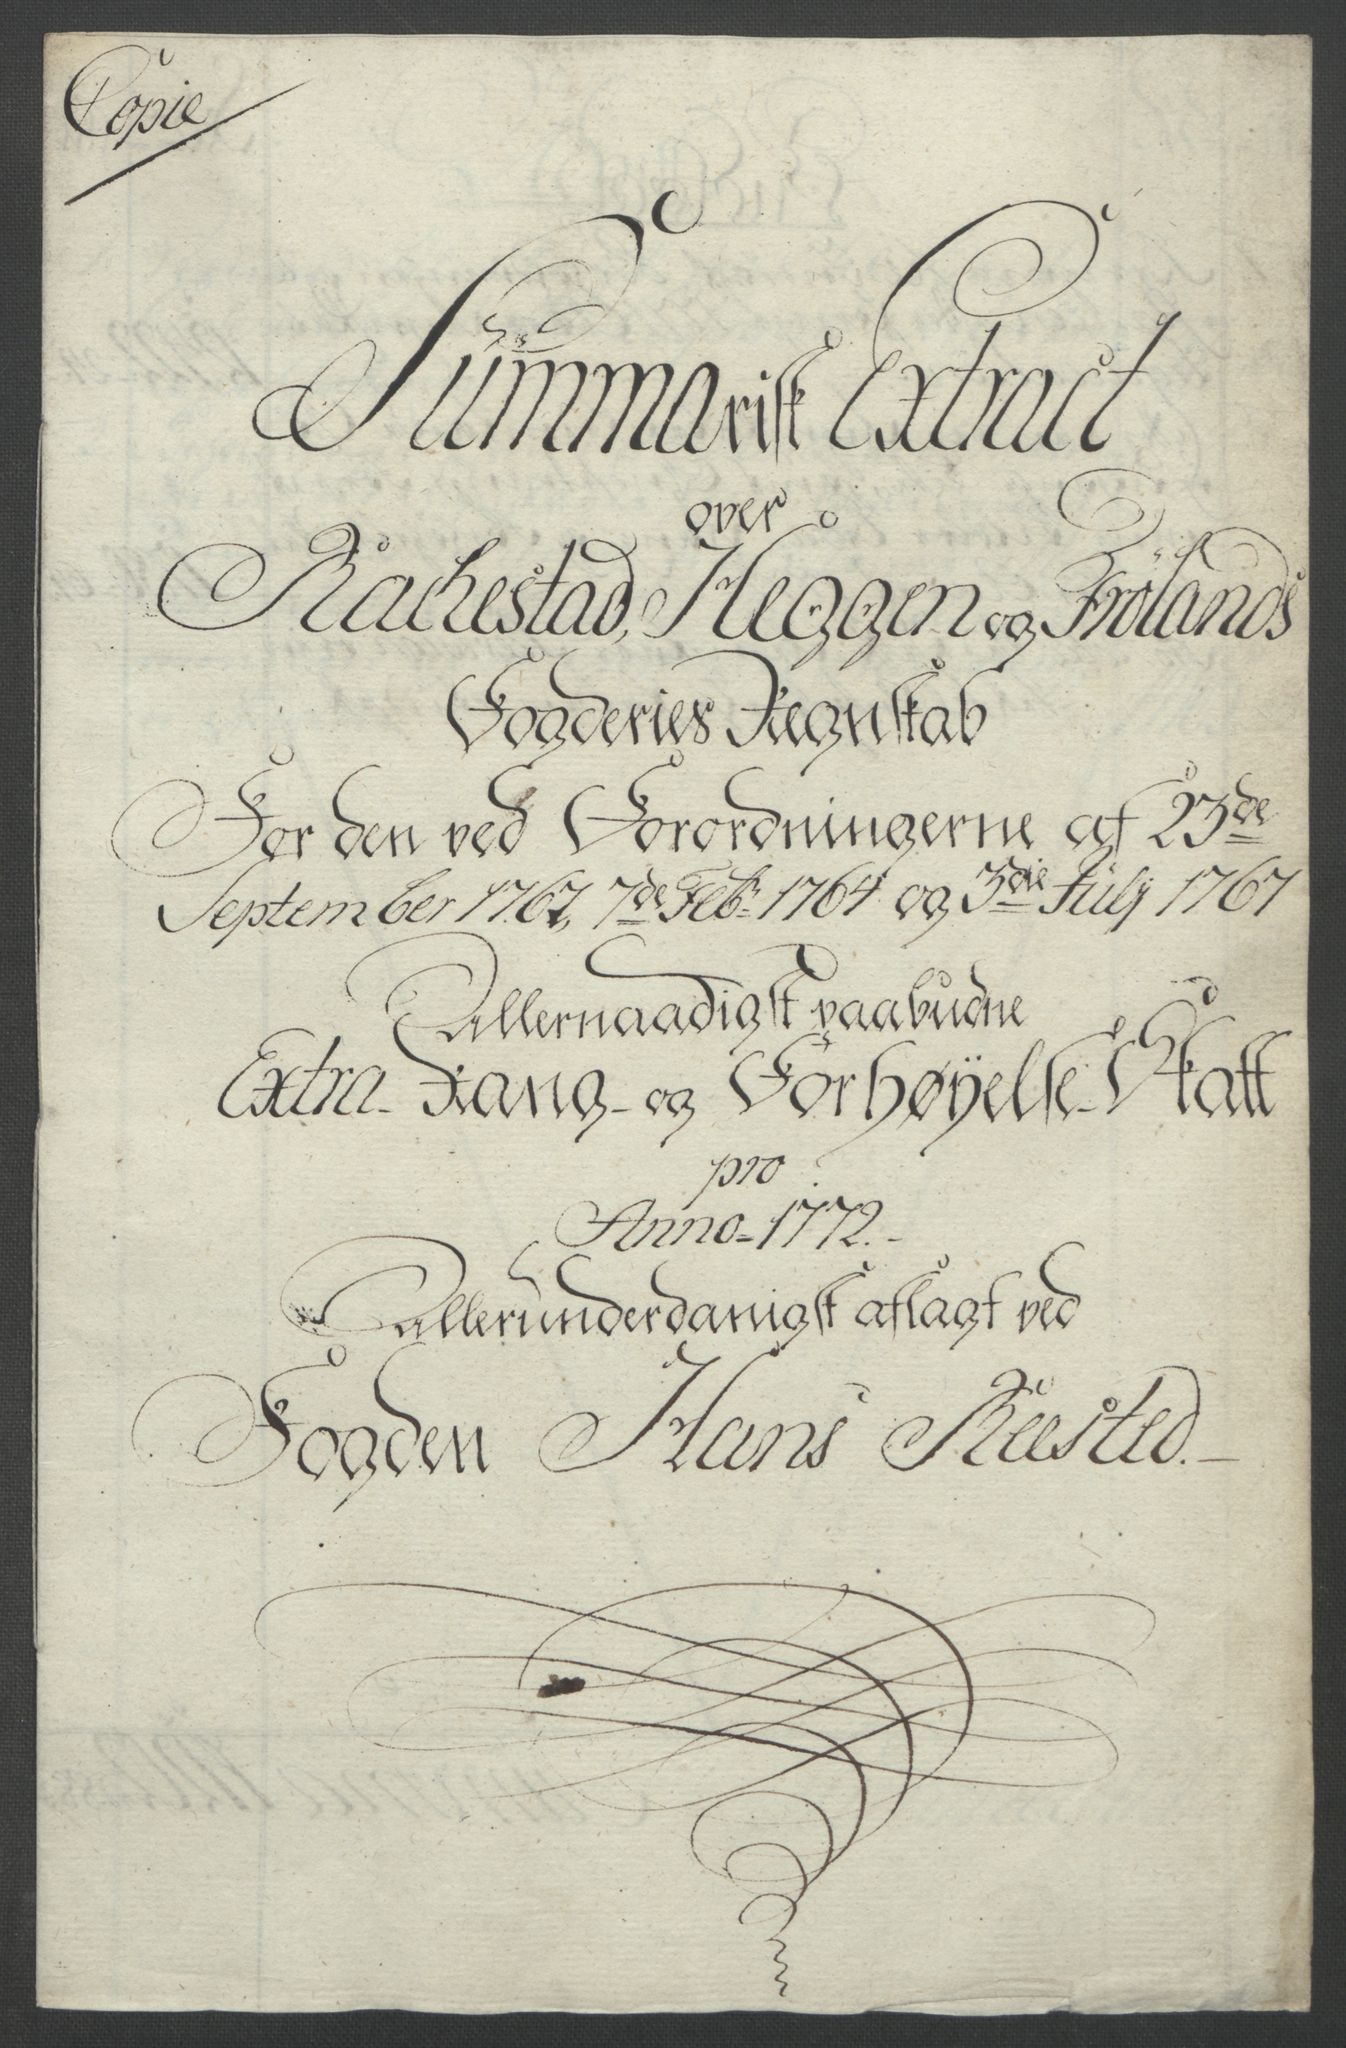 Copie
Summarisk Extract
over
Rachestad, Heggen og Frölands
Fogderies Regnskab
For den ved Forordningerne af 23de
September 1762, 7de Febr. 1764 og 3die July 1767
Allernaadigst paabudne
Extra- Rang- og Forhøyelse-Skatt
pro
Anno- 1772.-
Allerunderdanigst aflagt ved
Fogden Hans Reested.-